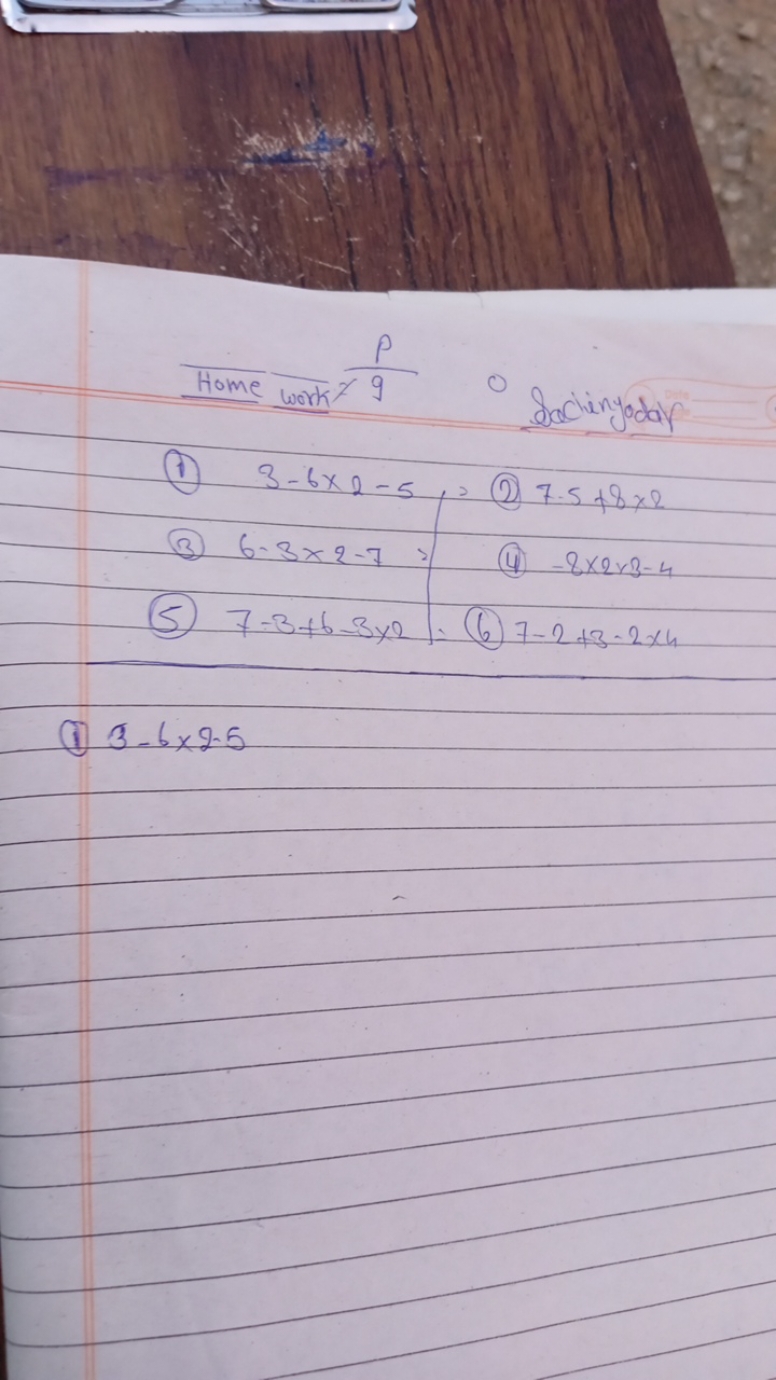 P
Home work 9
Sachinyadav
① 3-6×2-5 ② 7-5+8×2
③ 6-3×2-7 ④ -8×2×3-4
⑤ 7-3+6-3×2 ⑥ 7-2+3-2×4
① 3-6×2-5